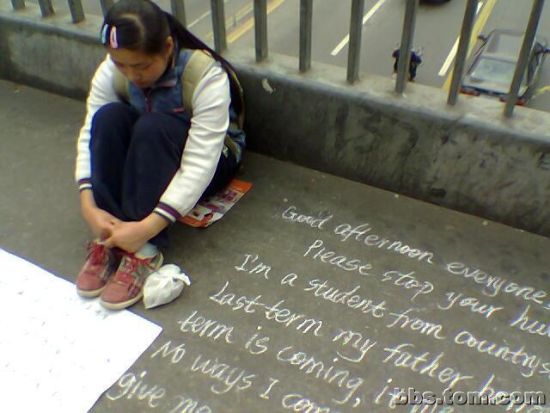 Good afternoon everyone
Please stop your hu
I'm a student from countrys
Last term my father
term is coming, i
No ways I com
give me
bbs.tom.com